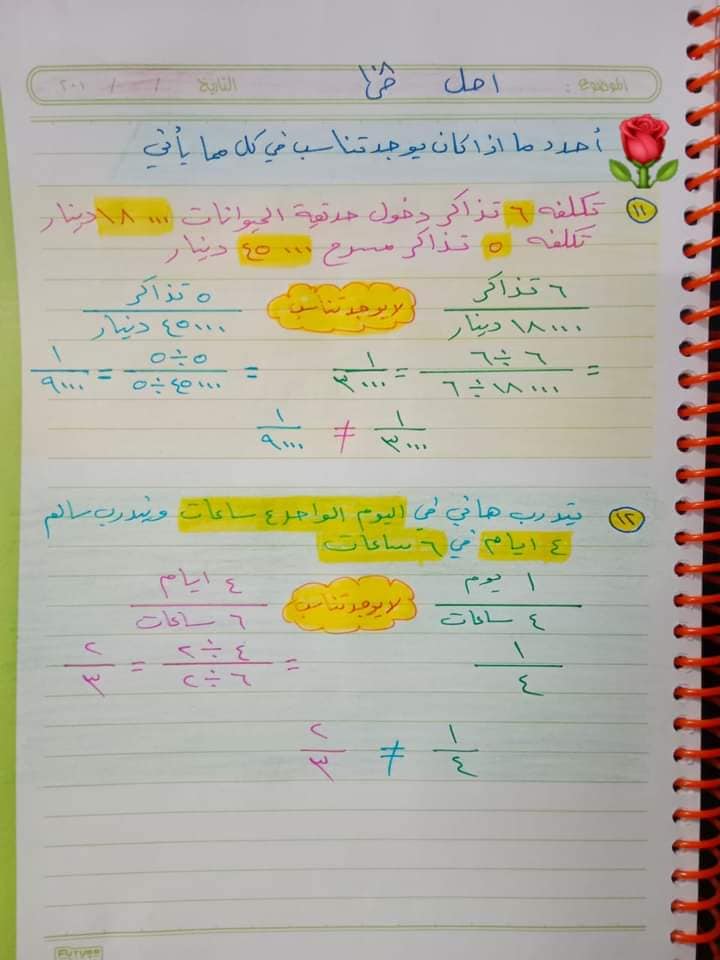 الموضوع : احل التاريخ / / ٢٠١
أحدد ما اذا كان يوجد تناسب في كل مما يأتي
١١ تكلفه ٦ تذاكر دخول حدقية الحيوانات ١٨٠٠٠ دينار
تكلفه ٥ تذاكر مسرح ٤٥٠٠٠ دينار
٦ تذاكر / ١٨٠٠٠ دينار لا يوجد تناسب ٥ تذاكر / ٤٥٠٠٠ دينار
= ٦ ÷ ٦ / ١٨٠٠٠ ÷ ٦ = ١ / ٣٠٠٠ = ٥ ÷ ٥ / ٤٥٠٠٠ ÷ ٥ = ١ / ٩٠٠٠
١ / ٣٠٠٠ ≠ ١ / ٩٠٠٠
١٢ يتدرب هاني في اليوم الواحد ٤ ساعات ويتدرب سالم
٤ ايام في ٦ ساعات
١ يوم / ٤ ساعات لا يوجد تناسب ٤ ايام / ٦ ساعات
١ / ٤ = ٤ ÷ ٢ / ٦ ÷ ٢ = ٢ / ٣
١ / ٤ ≠ ٢ / ٣
FUTURE